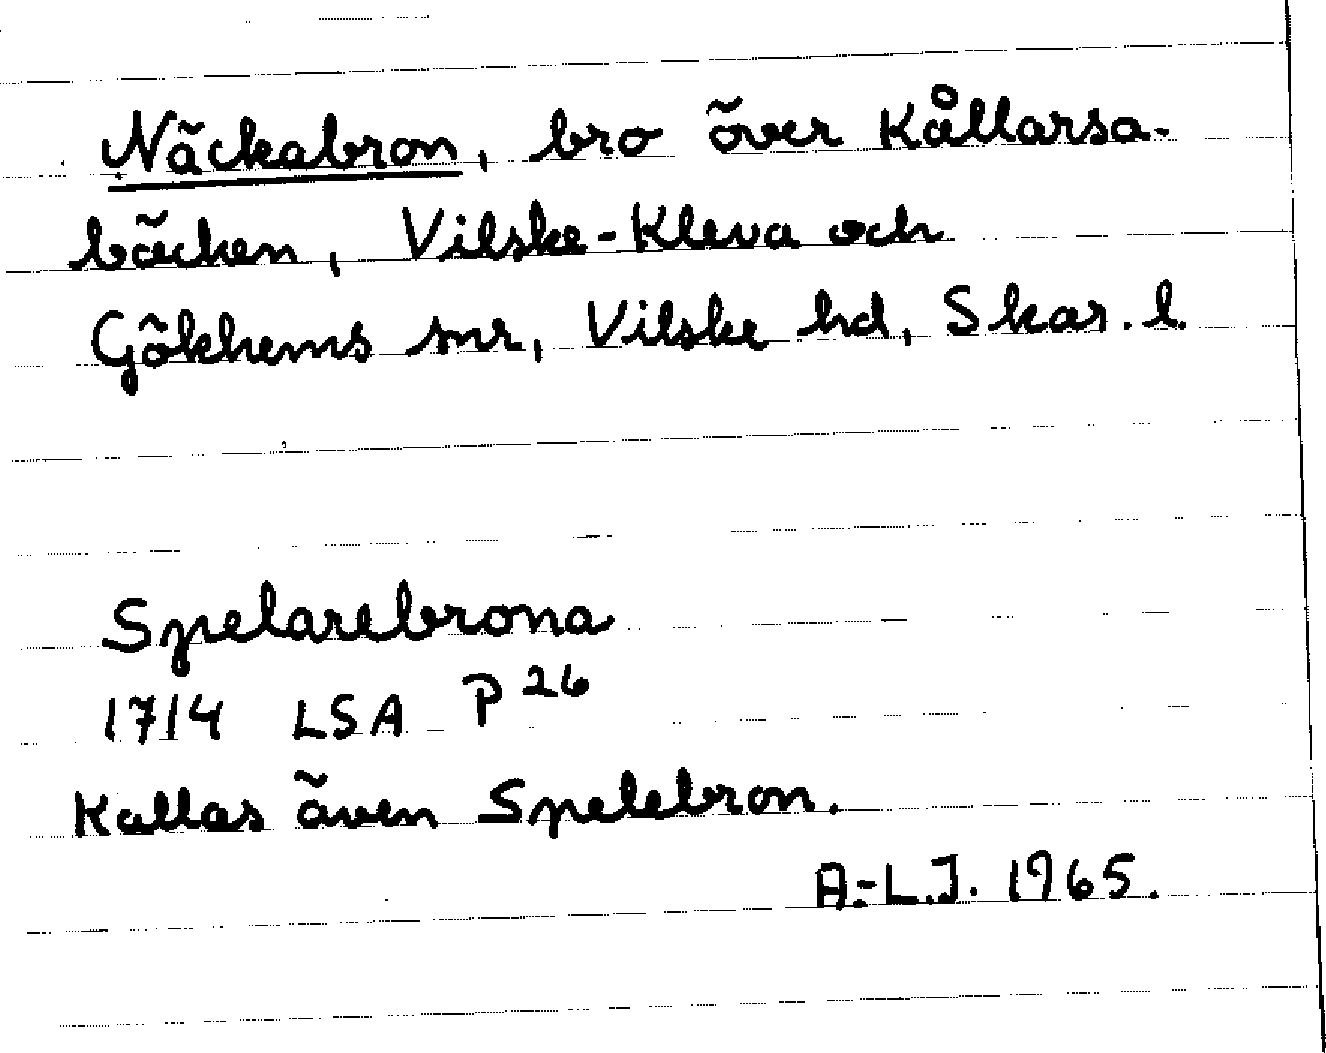 Näckabron, bro över Kållarsa-
bäcken, Vilske-Kleva och
Gökhems snr, Vilske hd, Skar. l.
Spelarebrona
1714 LSA P 26
Kallas även Spelebron.
A.-L.J. 1965.